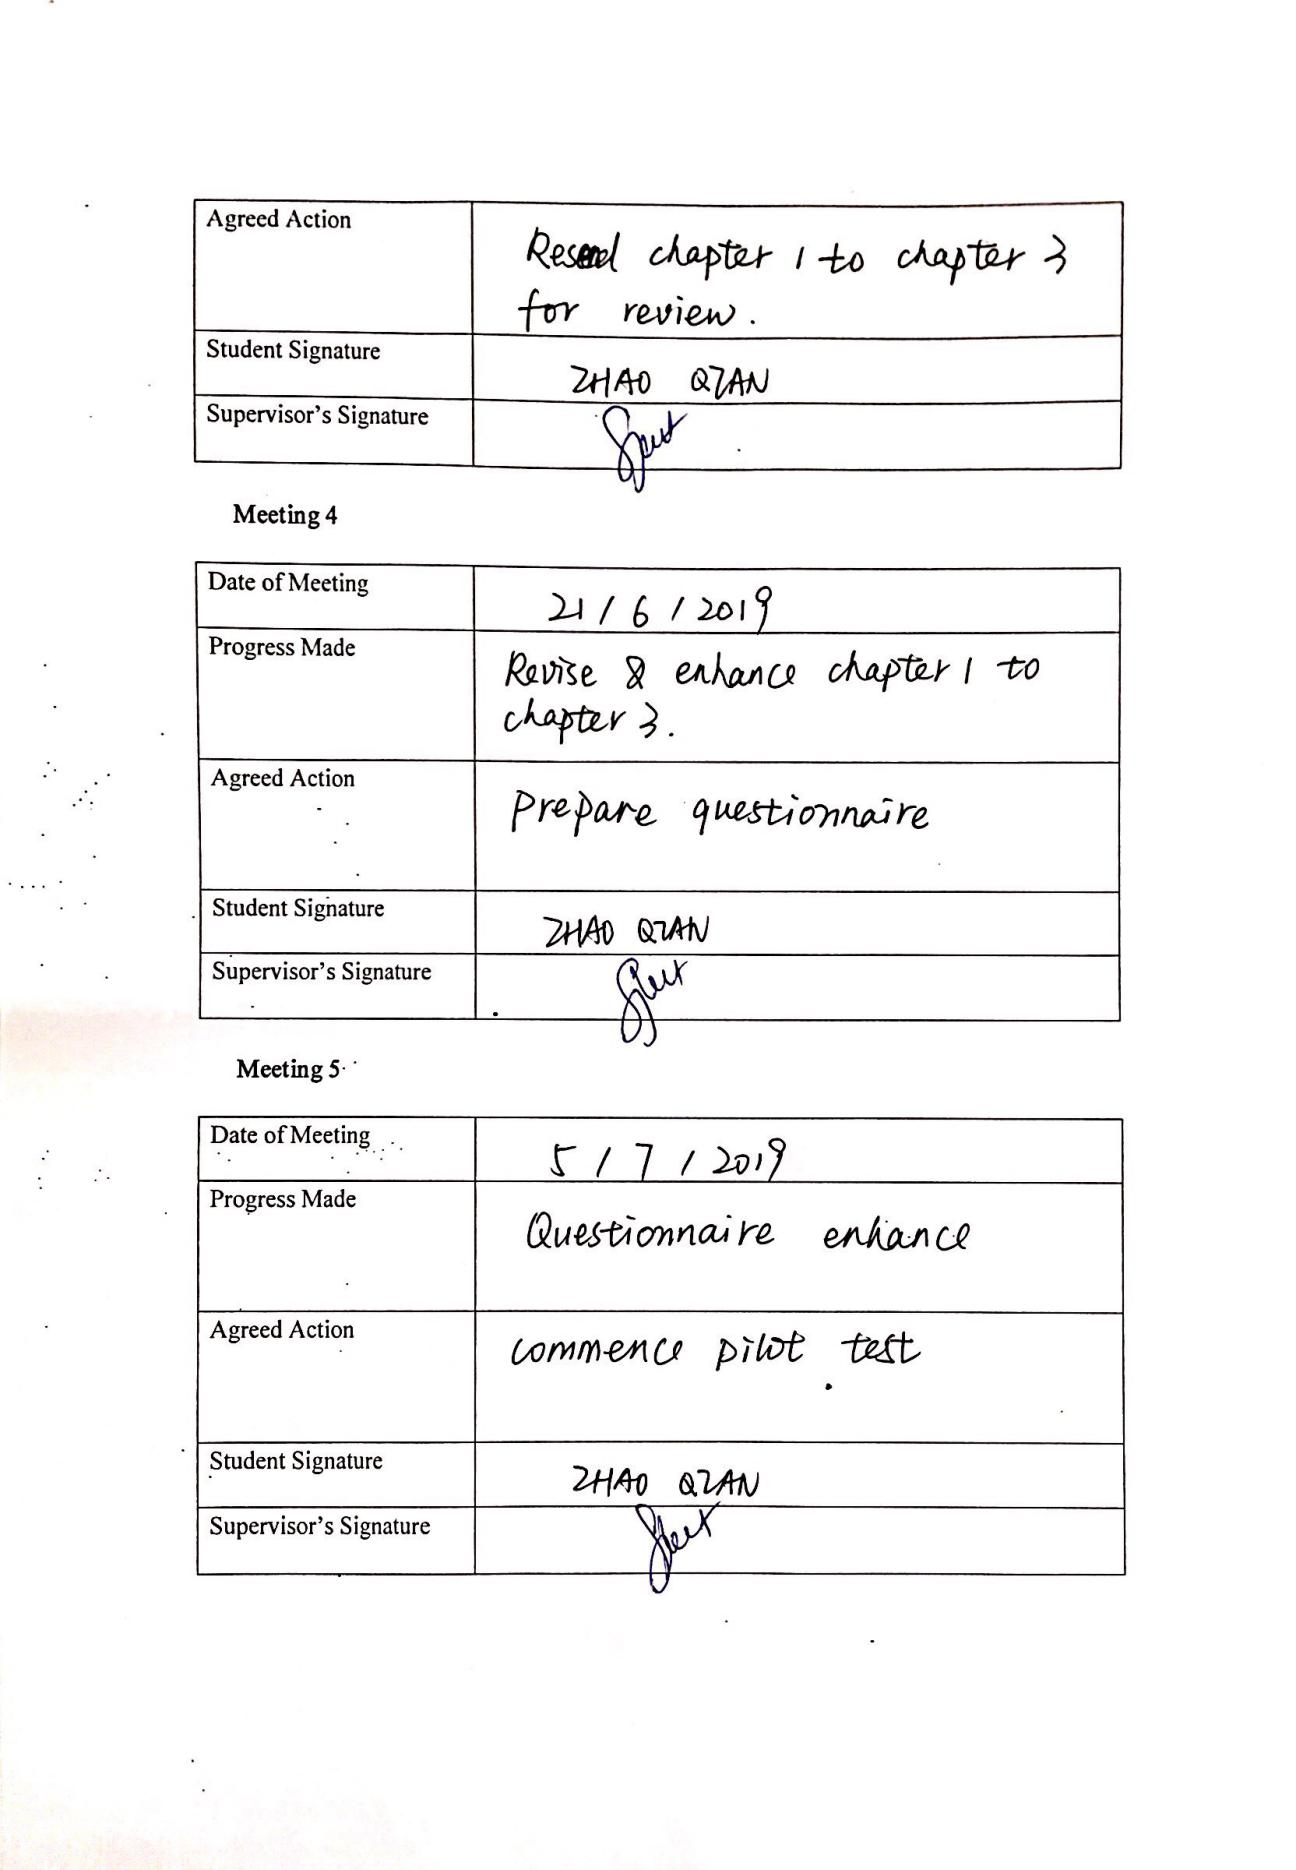 Agreed Action
Resend chapter 1 to chapter 3
for review.
Student Signature
ZHAO QIAN
Supervisor's Signature
Meeting 4
Date of Meeting
21 / 6 / 2019
Progress Made
Revise & enhance chapter 1 to
chapter 3.
Agreed Action
Prepare questionnaire
Student Signature
ZHAO QIAN
Supervisor's Signature
Meeting 5
Date of Meeting
5 / 7 / 2019
Progress Made
Questionnaire enhance
Agreed Action
commence pilot test
Student Signature
ZHAO QIAN
Supervisor's Signature